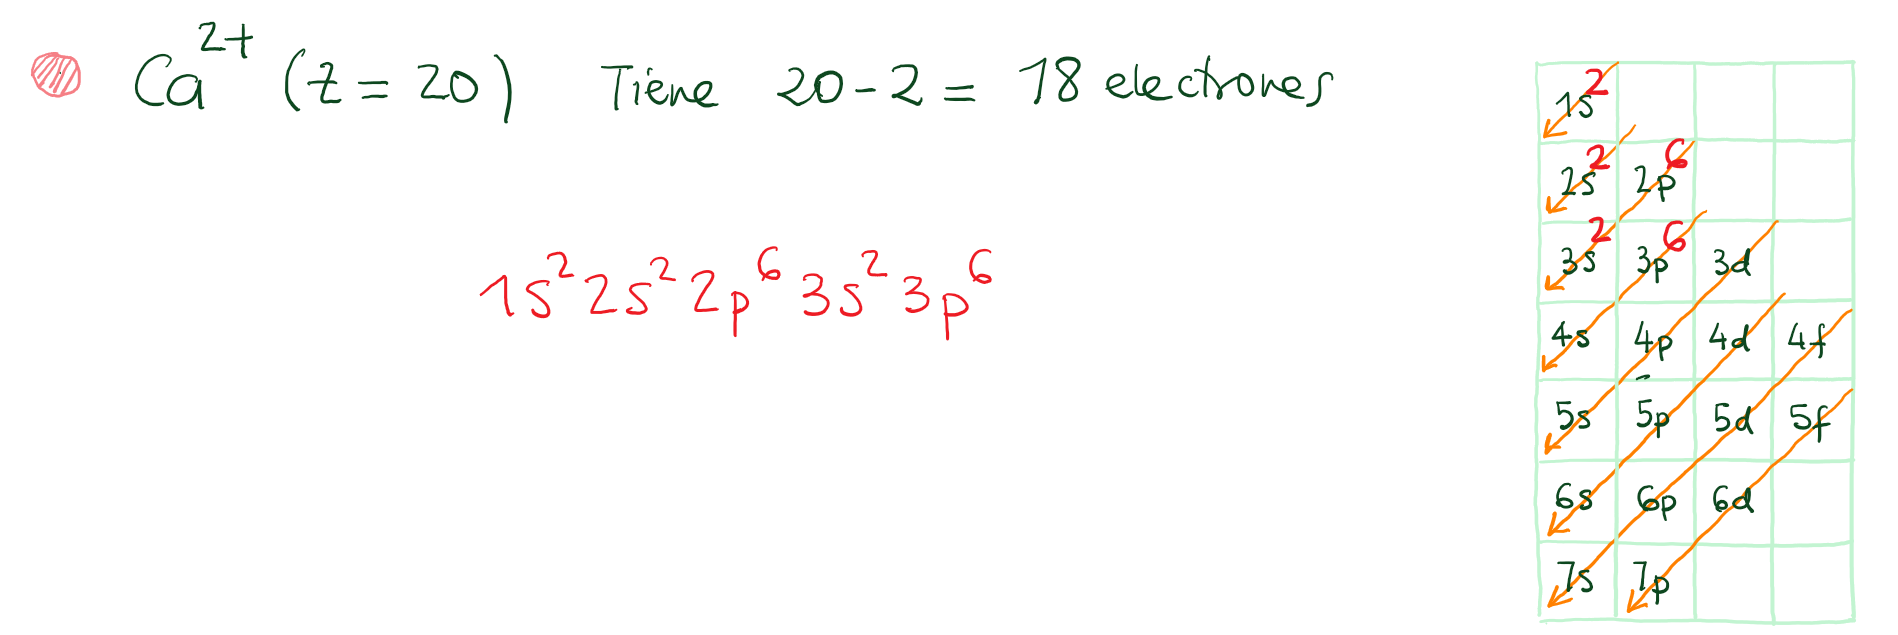 Ca²⁺ (z = 20) Tiene 20 - 2 = 18 electrones
1s² 2s² 2p⁶ 3s² 3p⁶
1s²
2s² 2p⁶
3s² 3p⁶ 3d
4s 4p 4d 4f
5s 5p 5d 5f
6s 6p 6d
7s 7p